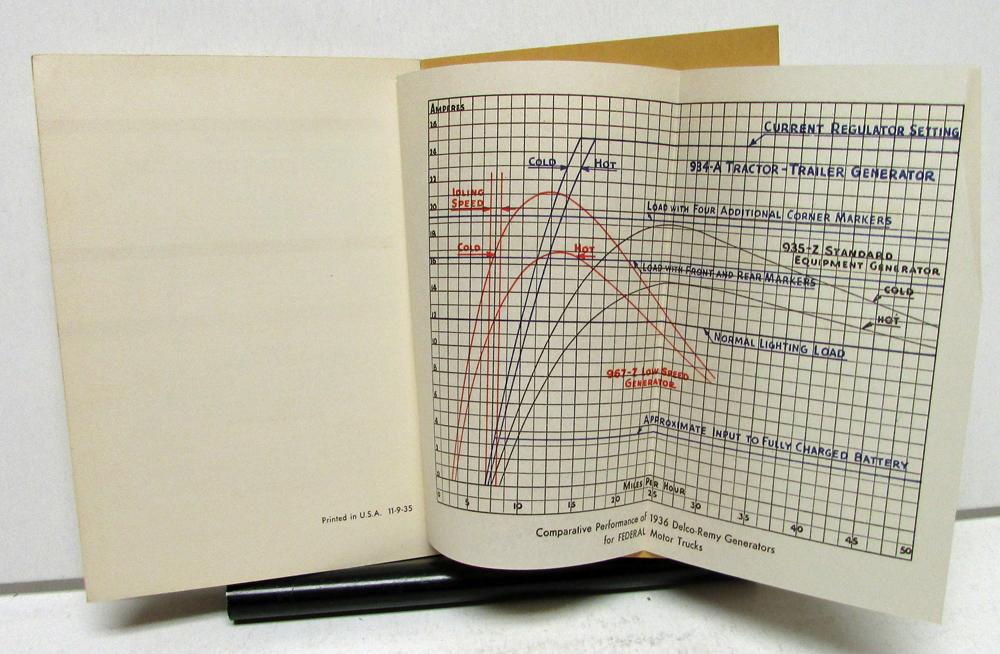 Printed in U.S.A. 11-9-35
AMPERES
CURRENT REGULATOR SETTING
COLD
HOT
934-A TRACTOR-TRAILER GENERATOR
IDLING
SPEED
LOAD WITH FOUR ADDITIONAL CORNER MARKERS
COLD
HOT
935-Z STANDARD
EQUIPMENT GENERATOR
LOAD WITH FRONT AND REAR MARKERS
COLD
HOT
NORMAL LIGHTING LOAD
967-Z LOW SPEED
GENERATOR
APPROXIMATE INPUT TO FULLY CHARGED BATTERY
26
24
22
20
18
16
14
12
10
8
6
4
2
0
MILES PER HOUR
5 10 15 20 25 30 35 40 45 50
Comparative Performance of 1936 Delco-Remy Generators
for FEDERAL Motor Trucks